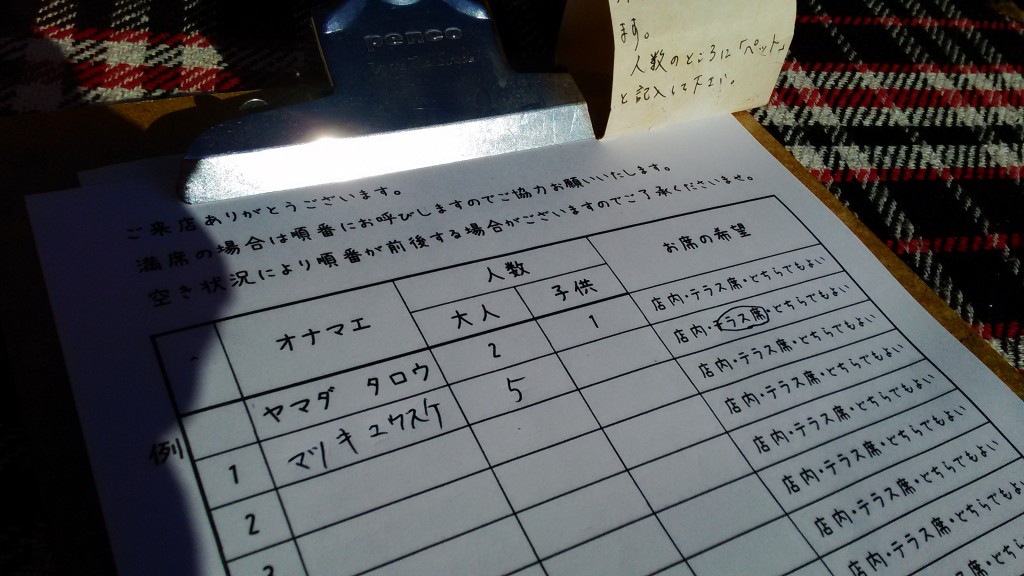 penco
ます。
人数のところに「ペット」
と記入して下さい。
ご来店ありがとうございます。
満席の場合は順番にお呼びしますのでご協力お願いいたします。
空き状況により順番が前後する場合がございますのでご了承くださいませ。
オナマエ 人数 お席の希望
大人 子供
例 ヤマダ タロウ 2 1 店内・テラス席・どちらでもよい
1 マツキ ユウスケ 5 店内・テラス席・どちらでもよい
2 店内・テラス席・どちらでもよい
3 店内・テラス席・どちらでもよい
店内・テラス席・どちらでもよい
店内・テラス席・どちらでもよい
店内・テラス席・どちらでもよい